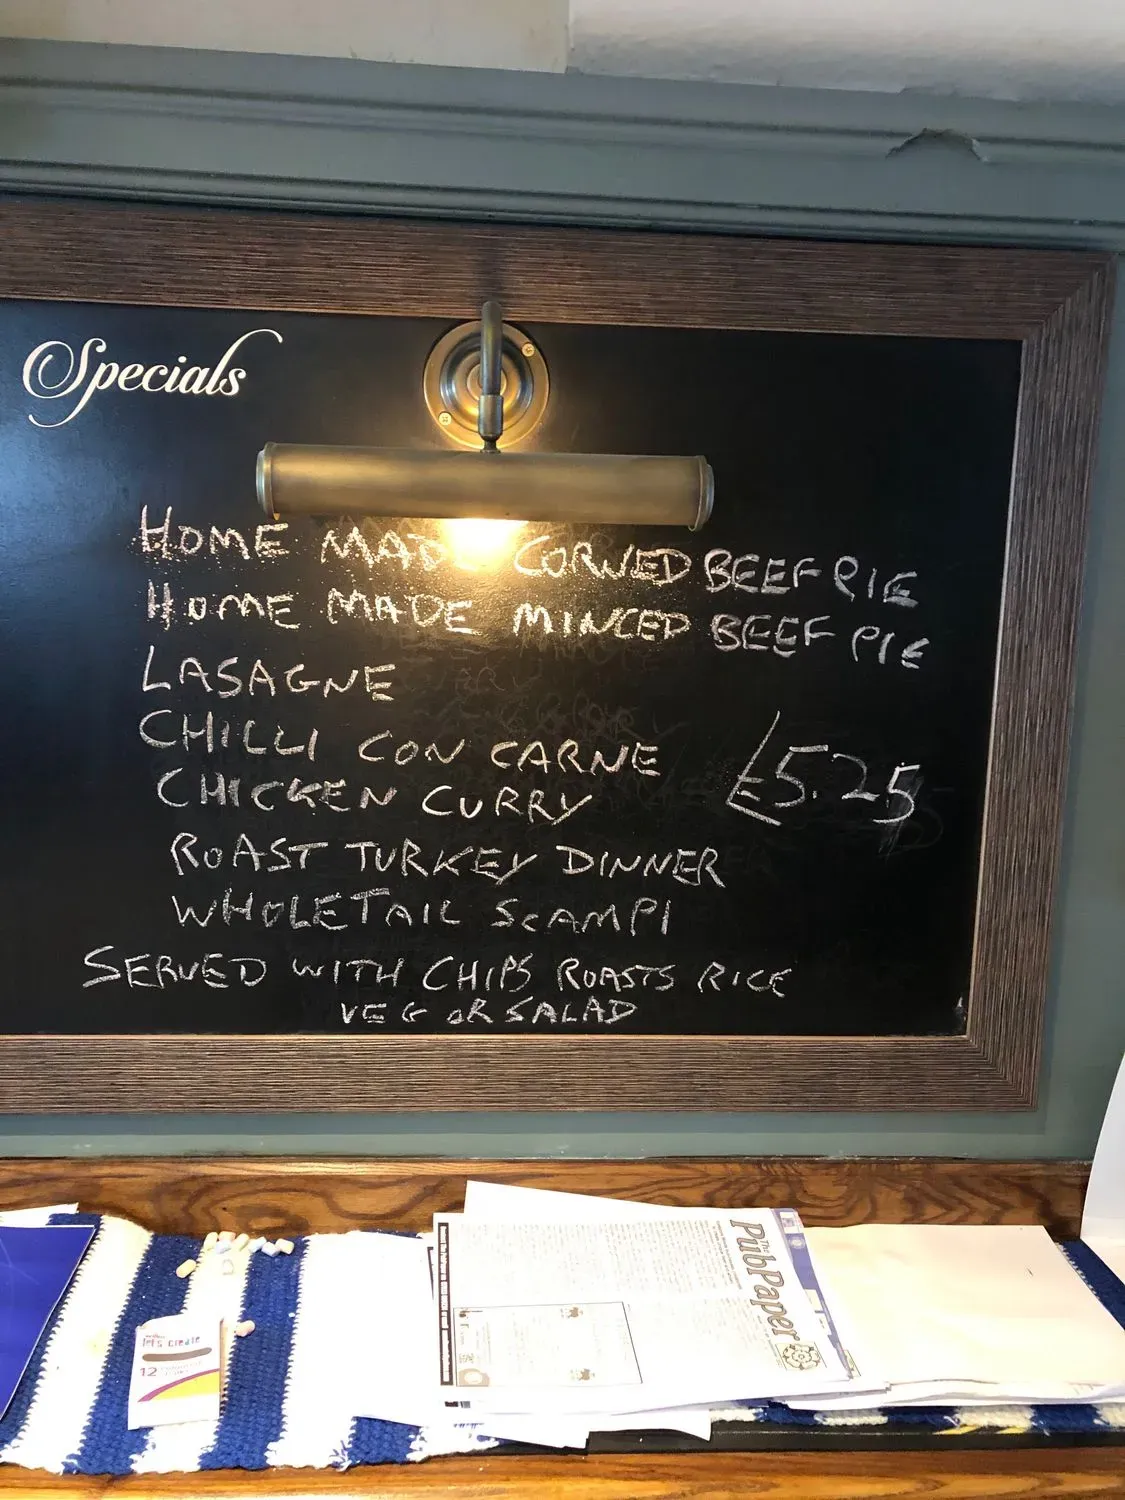 Specials
HOME MADE CORNED BEEF PIE
HOME MADE MINCED BEEF PIE
LASAGNE
CHILLI CON CARNE
£5.25
CHICKEN CURRY
ROAST TURKEY DINNER
WHOLETAIL SCAMPI
SERVED WITH CHIPS ROASTS RICE
VEG OR SALAD
The
PubPaper
let's create
12